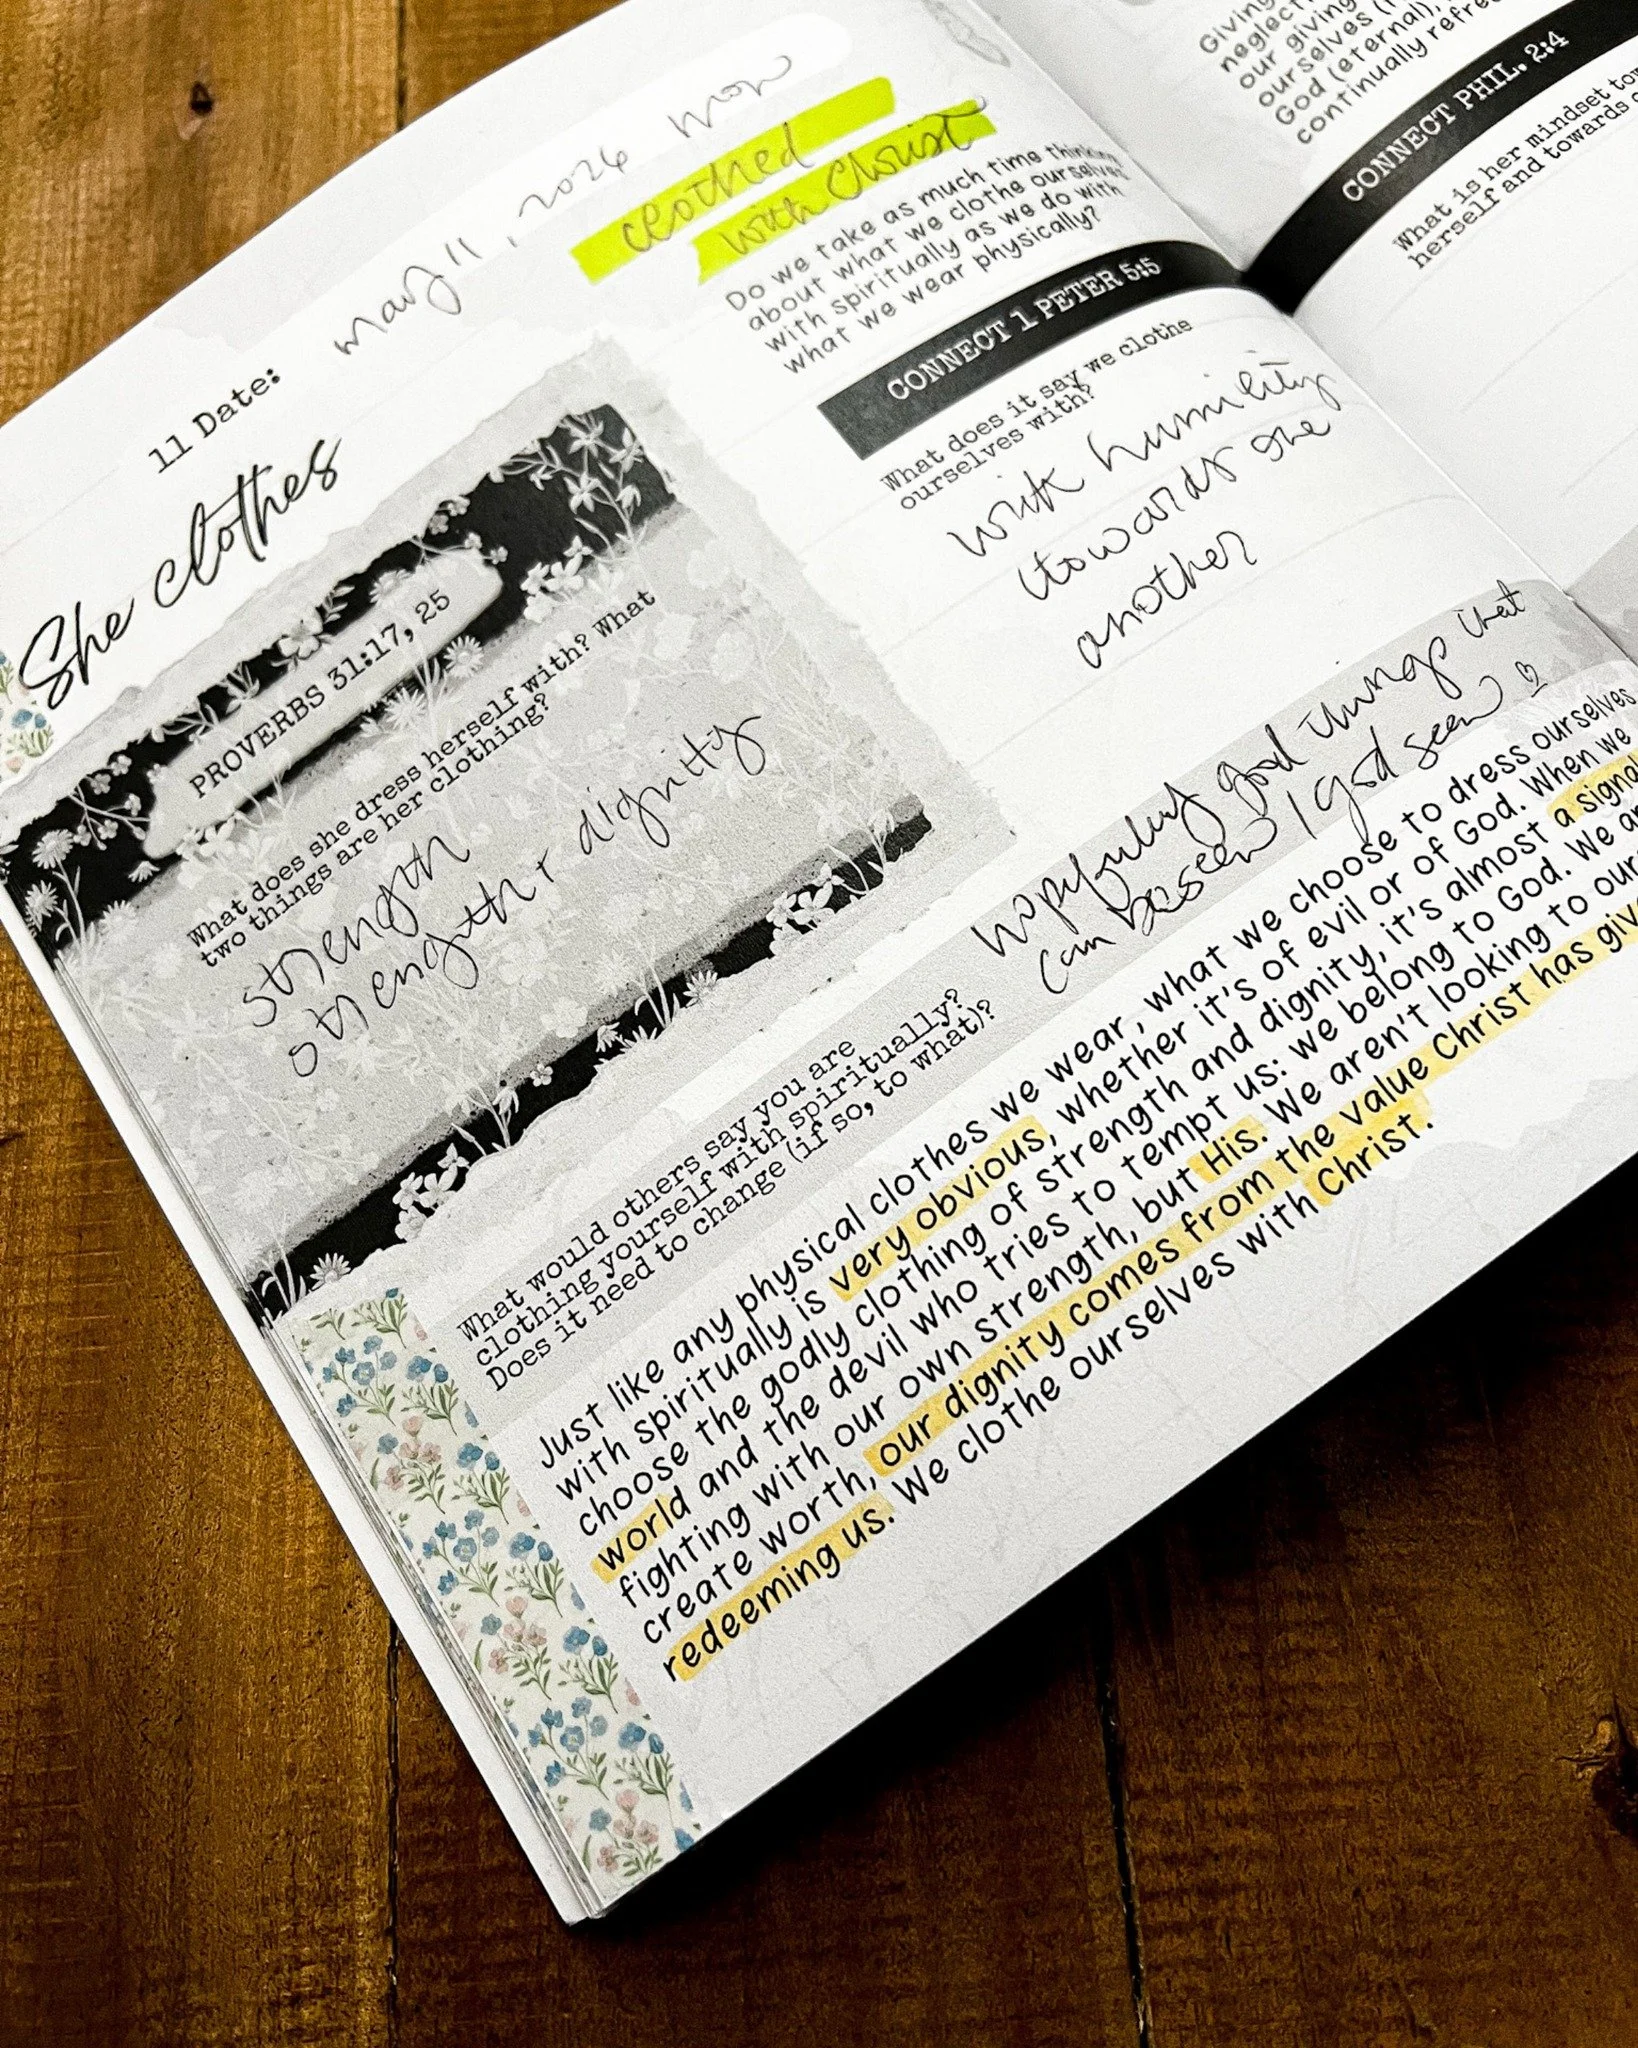 11 Date: may 11, 2026 mon
She clothes
PROVERBS 31:17, 25
What does she dress herself with? What
two things are her clothing?
strength
strength + dignity
clothed
with Christ
Do we take as much time thinking
about what we clothe ourselves
with spiritually as we do with
what we wear physically?
CONNECT 1 PETER 5:5
What does it say we clothe
ourselves with?
with humility
towards one
another
What would others say you are
clothing yourself with spiritually?
Does it need to change (if so, to what)?
hopefully good things that
can be seen / god seen ♡
Just like any physical clothes we wear, what we choose to dress ourselves
with spiritually is very obvious, whether it's of evil or of God. When we
choose the godly clothing of strength and dignity, it's almost a signal
world and the devil who tries to tempt us: we belong to God. We
fighting with our own strength, but His. We aren't looking to
create worth, our dignity comes from the value Christ has
redeeming us. We clothe ourselves with Christ.
Giving
our giving
ourselves
God (eternal),
continually
CONNECT PHIL. 2:4
What is her mindset
herself and towards